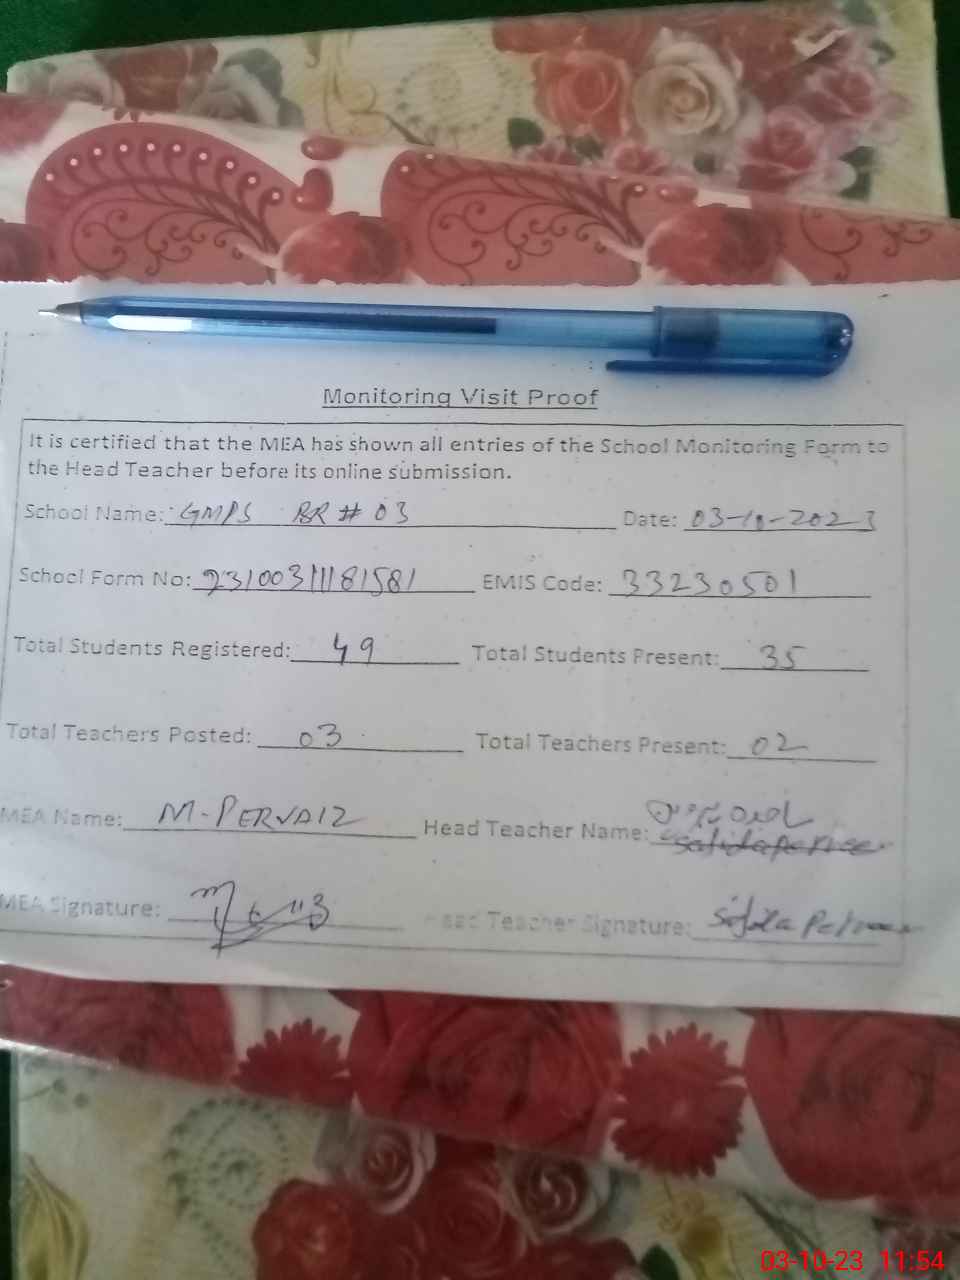 Monitoring Visit Proof
It is certified that the MEA has shown all entries of the School Monitoring Form to
the Head Teacher before its online submission.
School Name: GMPS BR # 03 Date: 03-10-2023
School Form No: 2310031181581 EMIS Code: 33230501
Total Students Registered: 49 Total Students Present: 35
Total Teachers Posted: 03 Total Teachers Present: 02
MEA Name: M-PERVAIZ Head Teacher Name:
MEA Signature: Head Teacher Signature:
03-10-23 11:54